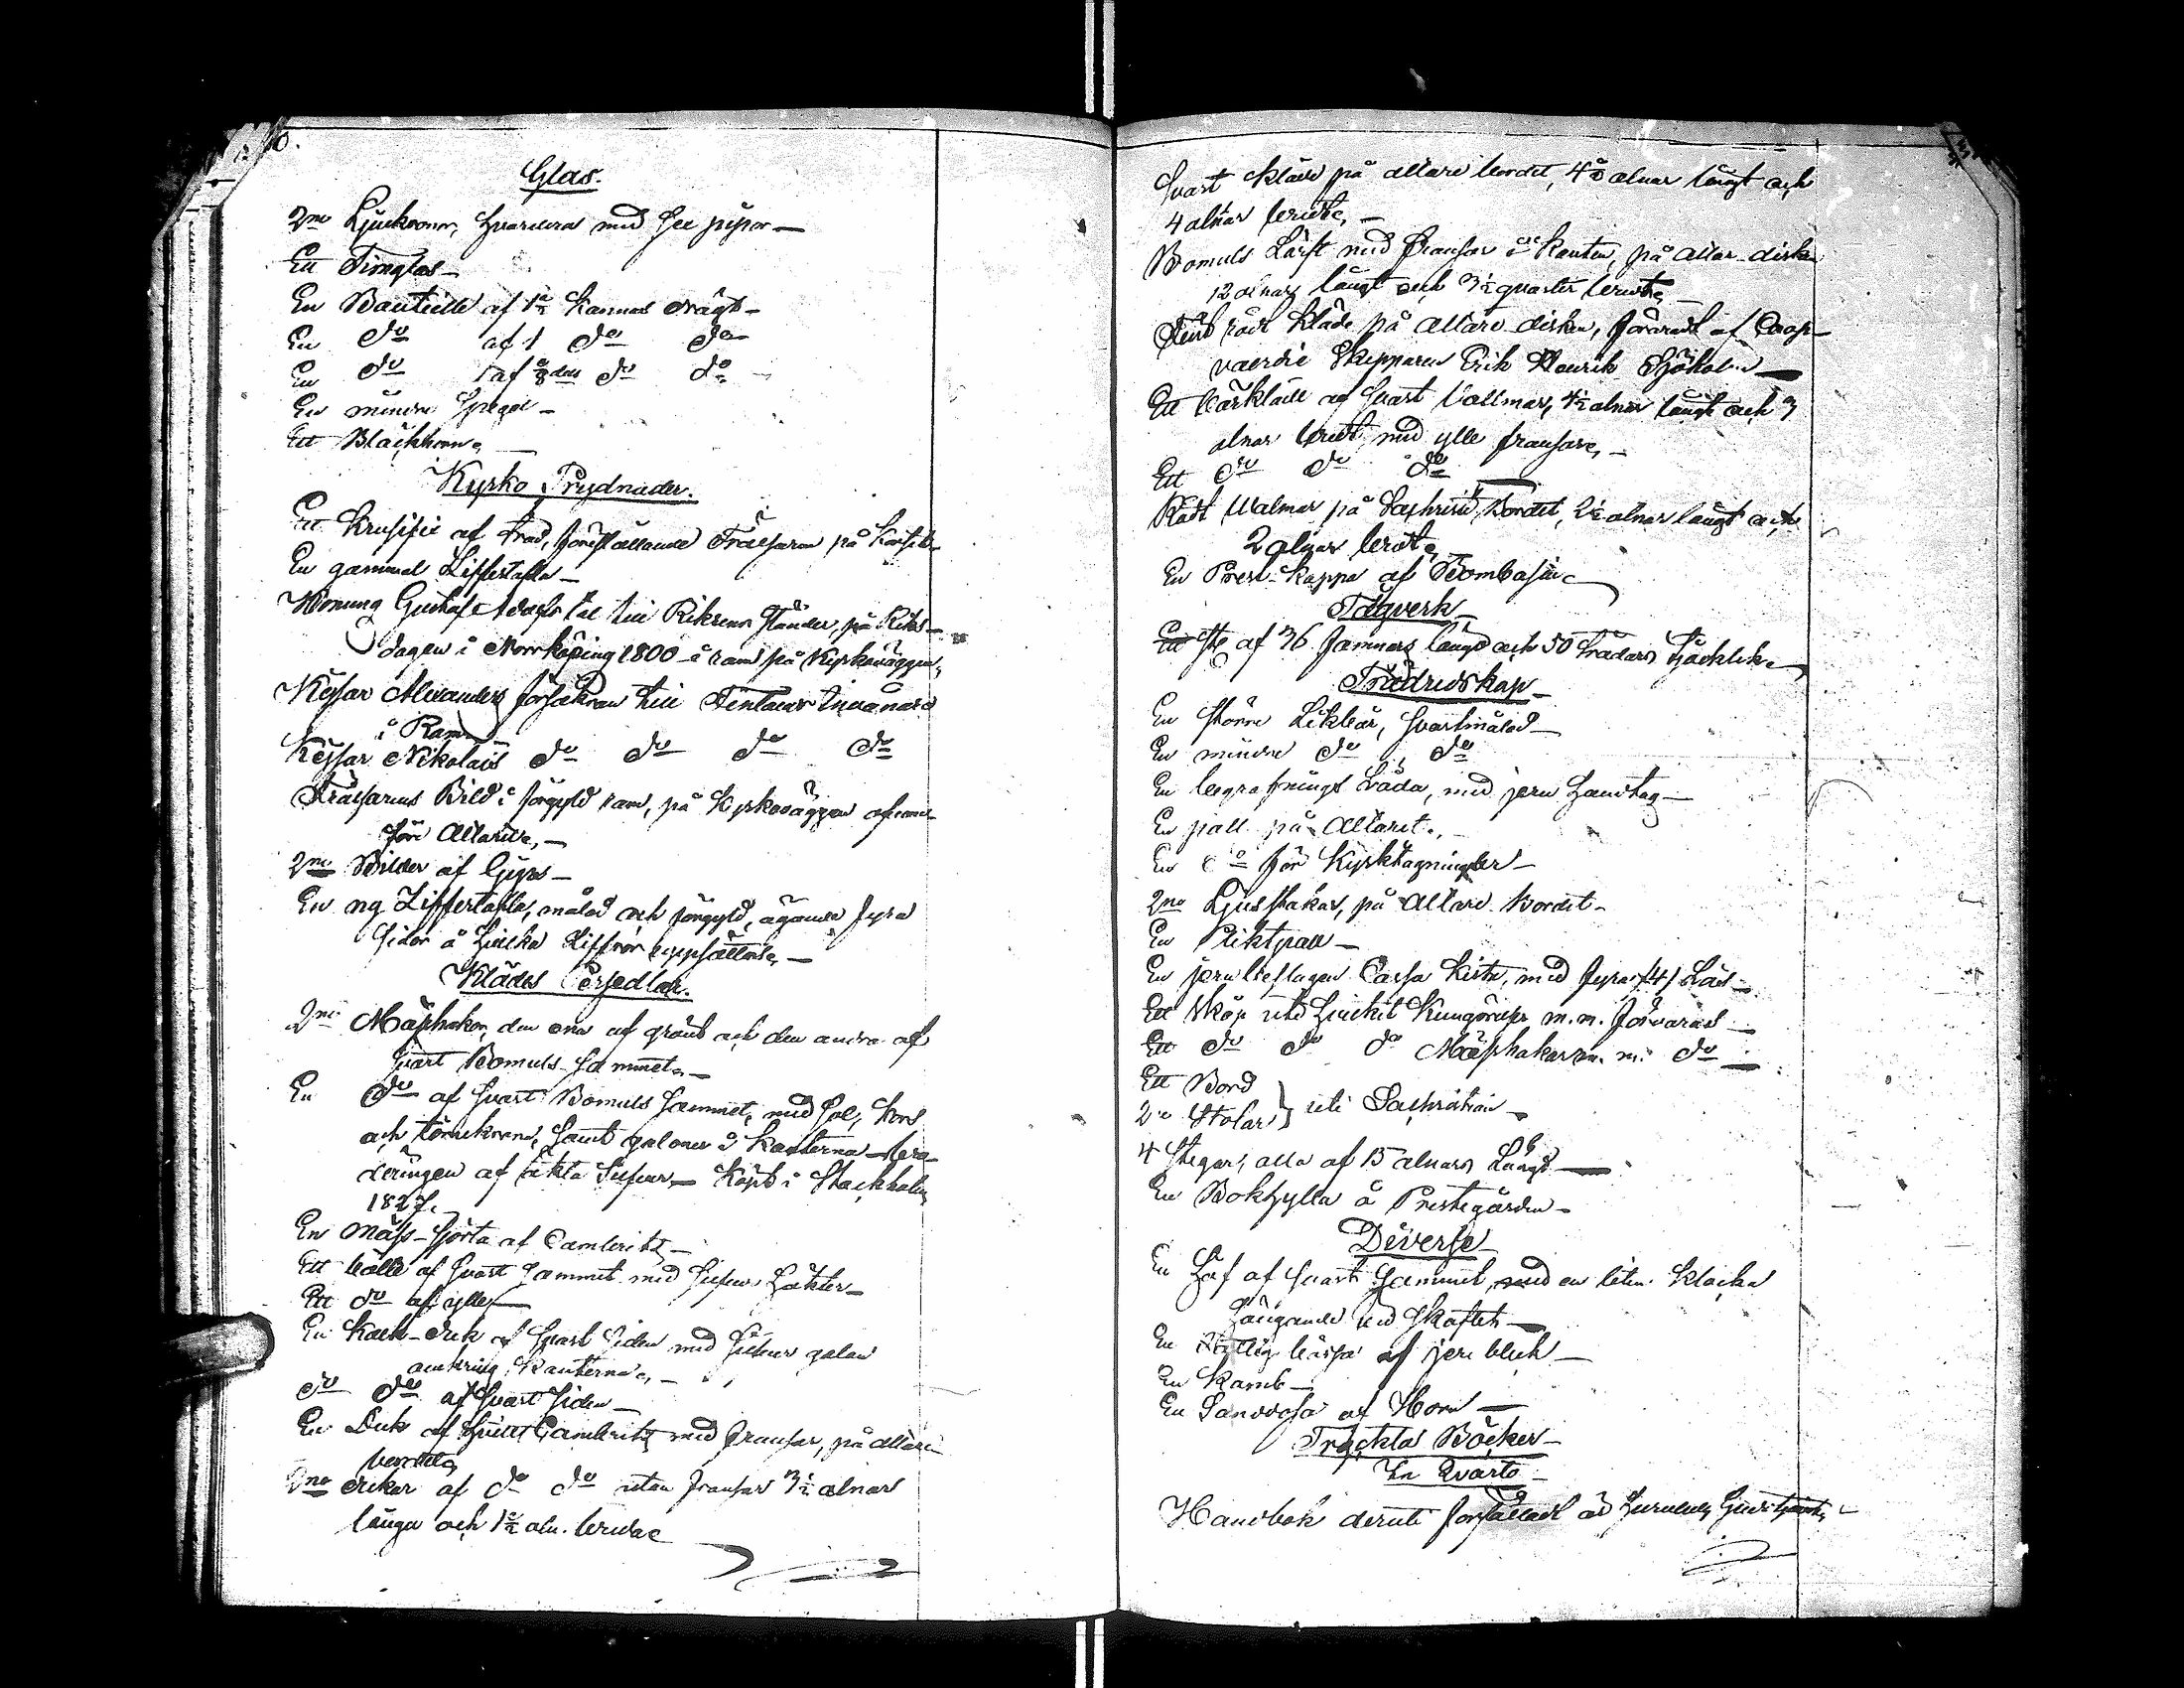 Glas.
2ne Ljuskronor, hvardera med sex pipor —
Ett Timglas —
En Bauteille af 1½ kannas drägt —
En do af 1 do do
En do af do do
En mindre Spegel —
Ett Bläckhorn, —
Kyrko Prydnader.
Ett Krusifix af träd, föreställande Frälsaren på korset —
En gammal Ziffertafla —
Konung Gustaf Adolfs tal till Riksens Ständer, på Riks-
dagen i Norrköping 1800 i ram på Kyrkoväggen,
Kejsar Alexanders försäkran till Finlands Invånare
i Ram
Kejsar Nikolais do do do do
Frälsarens Bild i förgyld ram, på Kyrkoväggen ofvan-
före Altaret, —
2ne Bilder af Gyps —
En ny Ziffertafla, målad och förgyld, ägande fyra
sidor å hvilka Ziffror uppsättas, —
Klädes Persedlar.
2ne Mässhakar, den ena af grönt och den andra af
svart Bomuls-Sammet, —
En do af svart Bomuls Sammet, med Sol, kors
och törnekrona, samt galoner i kanterna — bro-
deringen af äkta Silfver, — köpt i Stockholm
1827.
En Mäss-Sjorta af Cambritz —
Ett bälte af svart Sammet med silfver häkter —
Ett do af ylle —
En Kalk-duk af svart Siden med silfver galon
omkring kanterna, —
do do af svart Siden —
En Duk af hvitt Cambritz med fransar, på altare
bordet,
2ne dukar af do do utan fransar 3½ alnar
långa och 1½ aln. breda
Svart kläde på altare bordet, 4 alnar långt och
4 alnar bredt, —
Bomuls Lärft med fransar i kanten, på altar-disken
12 alnar långt och 3½ quarter bredt, —
Fint rödt kläde på altare disken, föräradt af Coop-
vaerdie Skepparen Erik Henrik Sjöholm —
Ett bårkläde af svart Vallmar, 4½ alnar långt och 3
alnar bredt, med ylle fransar, —
Ett do do do
Rödt Walmar på Sachristie Bordet, 2½ alnar långt och
2 alnar bredt,
En Prest-kappa af Bombasin
Tågverk —
af 36 famnars längd och 50 trådars tjocklek
Trädredskap —
En större Likbår, svartmålad —
En mindre do do
En begrafnings Låda, med jern handtag —
En pall på Altaret. —
En do för Kyrktagningar —
2ne Ljusstakar, på Altare Bordet —
En Pliktpall —
En jernbeslagen Cassa Kista, med fyra (4) Lås —
Ett skåp uti hvilket Kungörelser m.m. förvaras —
Ett do do do Mässhakar m. m. do —
Ett Bord
2ne Stolar } uti Sachristian —
4 Stegar, alla af 15 alnars Längd —
En Bokhylla å Prestegården —
Diverse
En Håf af svart Sammet, med en liten klocka
hängande vid skaftet —
En bössa af jern bleck —
En Kamb —
En Sanddosa af Horn —
Tryckta Böcker —
In Qvarto —
Handbok deruti författadt är huruledes Gudstjensten